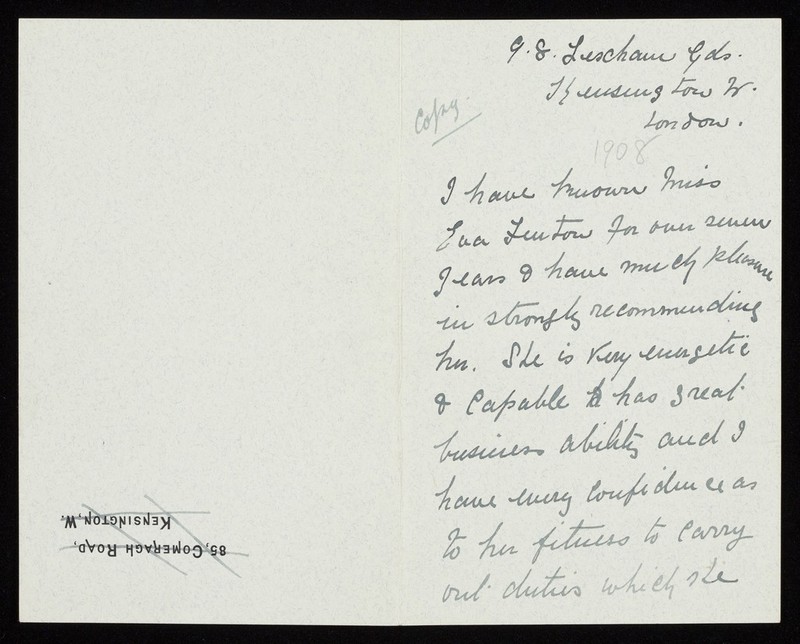 9. & Lexham Gds.
Kensington W.
London.
Copy
1908
I have known Miss
Eva Fenton for over seven
years & have much pleasure
in strongly recommending
her. She is very energetic
& capable & has great
business ability and I
have every confidence as
to her fitness to carry
out duties which she
85, COMERAGH ROAD,
KENSINGTON, W.